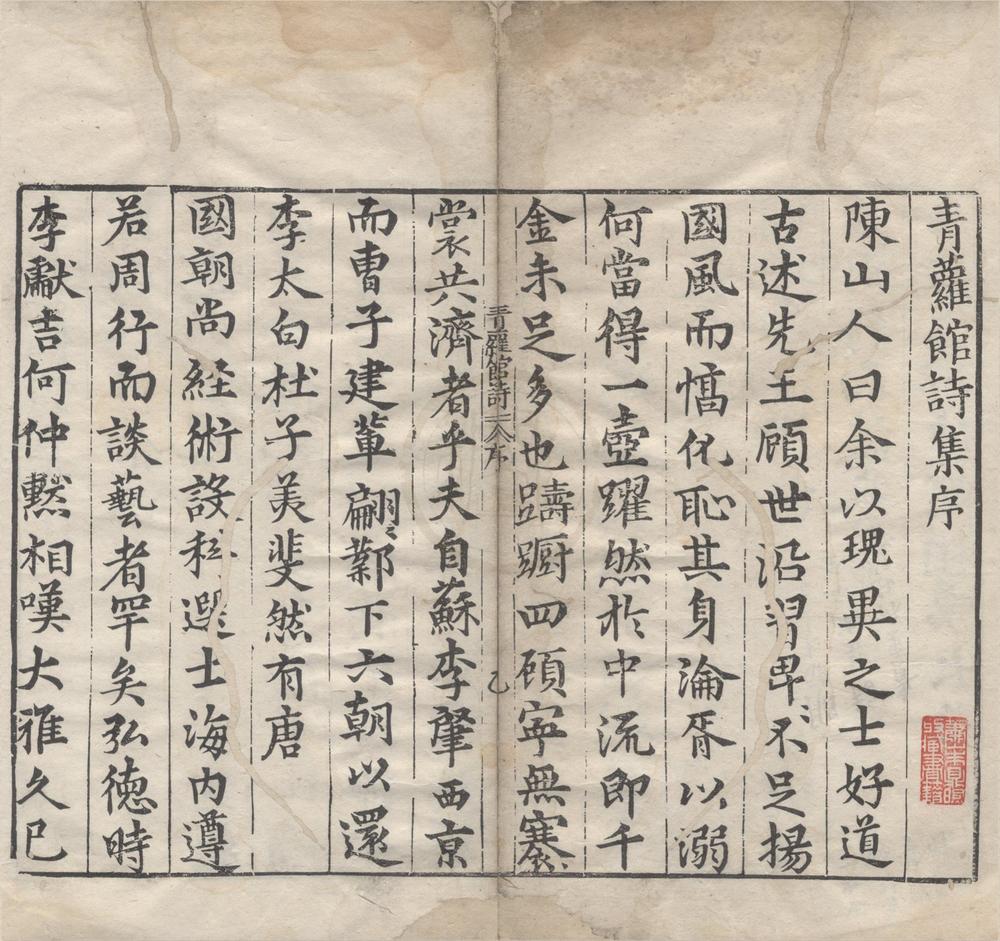 青蘿館詩集序
陳山人曰余以瑰異之士好道
古述先王顧世沿習卑〻不足揚
國風而化恥其身淪胥以溺
何當得一壺躍然於中流即千
金未足多也躊躕四顧寧無褰
青蘿館詩 序 乙
裳共濟者乎夫自蘇李肇西京
而曹子建軰翩〻鄴下六朝以還
李太白杜子美斐然有唐
國朝尚経術設科選士海内遵
若周行而談藝者罕矣弘徳時
李獻吉何仲黙相嘆大雅久已